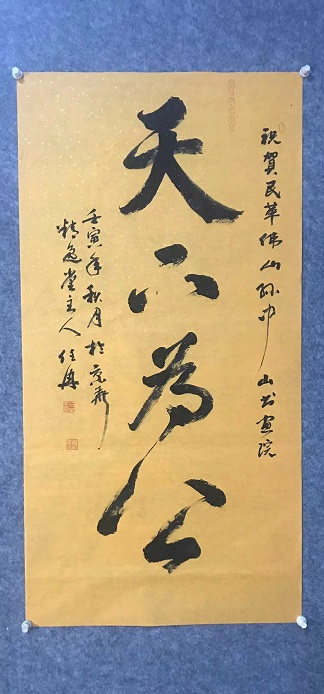 祝賀民革佛山孙中山书画院
天下為公
壬寅年秋月於京
逸堂主人任